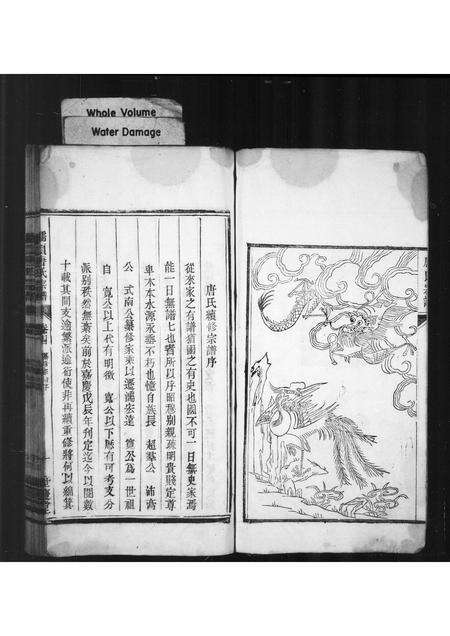 Whole Volume
Water Damage
唐氏續修宗譜序
從來家之有譜猶國之有史也國不可一日無史家焉
能一日無譜也者所以序昭穆別親疎明貴賤定尊
卑木本水源永垂不朽也憶自族長 超羣公 沛
公 式南公纂修家乘以遷 公為一世祖
自 寬公以上代有明徵 寬公以下歷有可考支分
派別秩然無紊矣前於嘉慶戊辰年刊定迄今以閱數
十載其間支逾繁派逾衍使非再續重修將何以綿其
唐氏宗譜